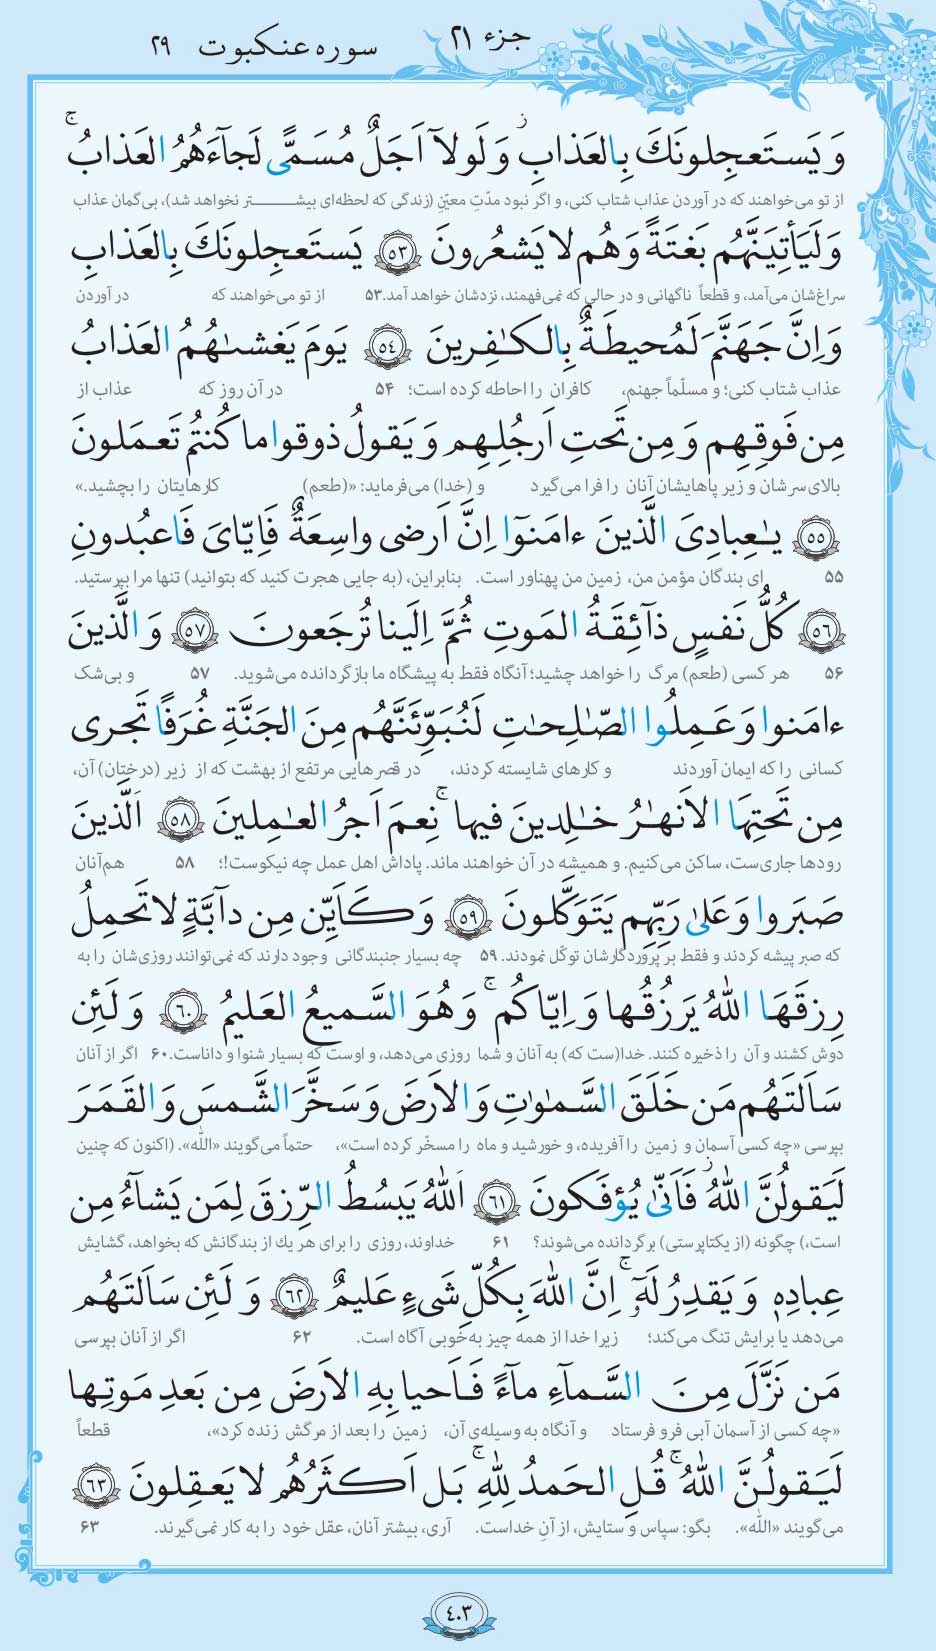 جزء ۲۱
سوره عنکبوت ۲۹
وَ يَستَعجِلونَكَ بِالعَذابِ ۚ وَ لَولاۤ اَجَلٌ مُسَمًّى لَجاۤءَهُمُ العَذابُ ۚ
از تو می‌خواهند که در آوردن عذاب شتاب کنی، و اگر نبود مدّتِ معیّنِ (زندگی که لحظه‌ای بیشتر نخواهد شد)، بی‌گمان عذاب
وَ لَيَأتِيَنَّهُم بَغتَةً وَ هُم لا يَشعُرونَ ﴿٥٣﴾ يَستَعجِلونَكَ بِالعَذابِ
سراغ‌شان می‌آمد، و قطعاً ناگهانی و در حالی که نمی‌فهمند، نزدشان خواهد آمد. ۵۳ از تو می‌خواهند که در آوردن
وَ اِنَّ جَهَنَّمَ لَمُحيطَةٌ بِالكـٰفِرينَ ﴿٥٤﴾ يَومَ يَغشىٰهُمُ العَذابُ
عذاب شتاب کنی؛ و مسلّماً جهنم، کافران را احاطه کرده است؛ ۵۴ در آن روز که عذاب از
مِن فَوقِهِم وَ مِن تَحتِ اَرجُلِهِم وَ يَقولُ ذوقوا ما كُنتُم تَعمَلونَ
بالای سرشان و زیر پاهایشان آنان را فرا می‌گیرد و (خدا) می‌فرماید: «(طعم) کارهایتان را بچشید.»
﴿٥٥﴾ يـٰعِبادِىَ الَّذينَ ءامَنوۤا اِنَّ اَرضى واسِعَةٌ فَاِيّاىَ فَاعبُدونِ
۵۵ ای بندگان مؤمن من، زمین من پهناور است. بنابراین، (به جایی هجرت کنید که بتوانید) تنها مرا بپرستید.
﴿٥٦﴾ كُلُّ نَفسٍ ذاۤئِقَةُ المَوتِ ثُمَّ اِلَينا تُرجَعونَ ﴿٥٧﴾ وَ الَّذينَ
۵۶ هر کسی (طعم) مرگ را خواهد چشید؛ آنگاه فقط به پیشگاه ما بازگردانده می‌شوید. ۵۷ و بی‌شک
ءامَنوا وَ عَمِلُوا الصّـٰلِحـٰتِ لَنُبَوِّئَنَّهُم مِنَ الجَنَّةِ غُرَفًا تَجرى
کسانی را که ایمان آوردند و کارهای شایسته کردند، در قصرهایی مرتفع از بهشت که از زیر (درختان) آن،
مِن تَحتِهَا الاَنهـٰرُ خـٰلِدينَ فيها ۚ نِعمَ اَجرُ العـٰمِلينَ ﴿٥٨﴾ اَلَّذينَ
رودها جاری‌ست، ساکن می‌کنیم. و همیشه در آن خواهند ماند. پاداش اهل عمل چه نیکوست!؛ ۵۸ هم‌آنان
صَبَروا وَ عَلىٰ رَبِّهِم يَتَوَكَّلونَ ﴿٥٩﴾ وَ كَاَيِّن مِن داۤبَّةٍ لا تَحمِلُ
که صبر پیشه کردند و فقط بر پروردگارشان توکّل نمودند. ۵۹ چه بسیار جنبندگانی وجود دارند که نمی‌توانند روزی‌شان را به
رِزقَهَا اللهُ يَرزُقُها وَ اِيّاكُم ۚ وَ هُوَ السَّميعُ العَليمُ ﴿٦٠﴾ وَ لَئِن
دوش کشند و آن را ذخیره کنند. خدا(ست که) به آنان و شما روزی می‌دهد، و اوست که بسیار شنوا و داناست. ۶۰ اگر از آنان
سَاَلتَهُم مَن خَلَقَ السَّمـٰوٰتِ وَ الاَرضَ وَ سَخَّرَ الشَّمسَ وَ القَمَرَ
بپرسی «چه کسی آسمان و زمین را آفریده، و خورشید و ماه را مسخّر کرده است»، حتماً می‌گویند «اللّٰه». (اکنون که چنین
لَيَقولُنَّ اللهُ ۖ فَاَنّىٰ يُؤفَكونَ ﴿٦١﴾ اَللهُ يَبسُطُ الرِّزقَ لِمَن يَشاۤءُ مِن
است،) چگونه (از یکتاپرستی) برگردانده می‌شوند؟ ۶۱ خداوند، روزی را برای هر یک از بندگانش که بخواهد، گشایش
عِبادِهٖ وَ يَقدِرُ لَهٗۤ ۚ اِنَّ اللهَ بِكُلِّ شَىءٍ عَليمٌ ﴿٦٢﴾ وَ لَئِن سَاَلتَهُم
می‌دهد یا برایش تنگ می‌کند؛ زیرا خدا از همه چیز به‌خوبی آگاه است. ۶۲ اگر از آنان بپرسی
مَن نَزَّلَ مِنَ السَّماۤءِ ماۤءً فَاَحيا بِهِ الاَرضَ مِن بَعدِ مَوتِها
«چه کسی از آسمان آبی فرو فرستاد و آنگاه به وسیله‌ی آن، زمین را بعد از مرگش زنده کرد»، قطعاً
لَيَقولُنَّ اللهُ ۚ قُلِ الحَمدُ لِلّٰهِ ۚ بَل اَكثَرُهُم لا يَعقِلونَ ﴿٦٣﴾
می‌گویند «اللّٰه». بگو: سپاس و ستایش، از آنِ خداست. آری، بیشتر آنان، عقل خود را به کار نمی‌گیرند. ۶۳
٤٠٣